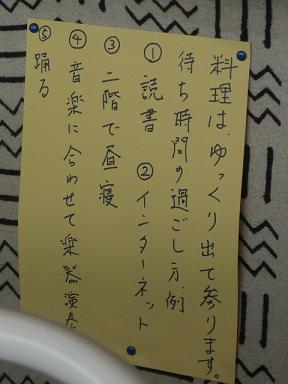 料理は、ゆっくり出て参ります。
待ち時間の過ごし方、例
① 読書 ② インターネット
③ 二階で昼寝
④ 音楽に合わせて楽器演奏
⑤ 踊る